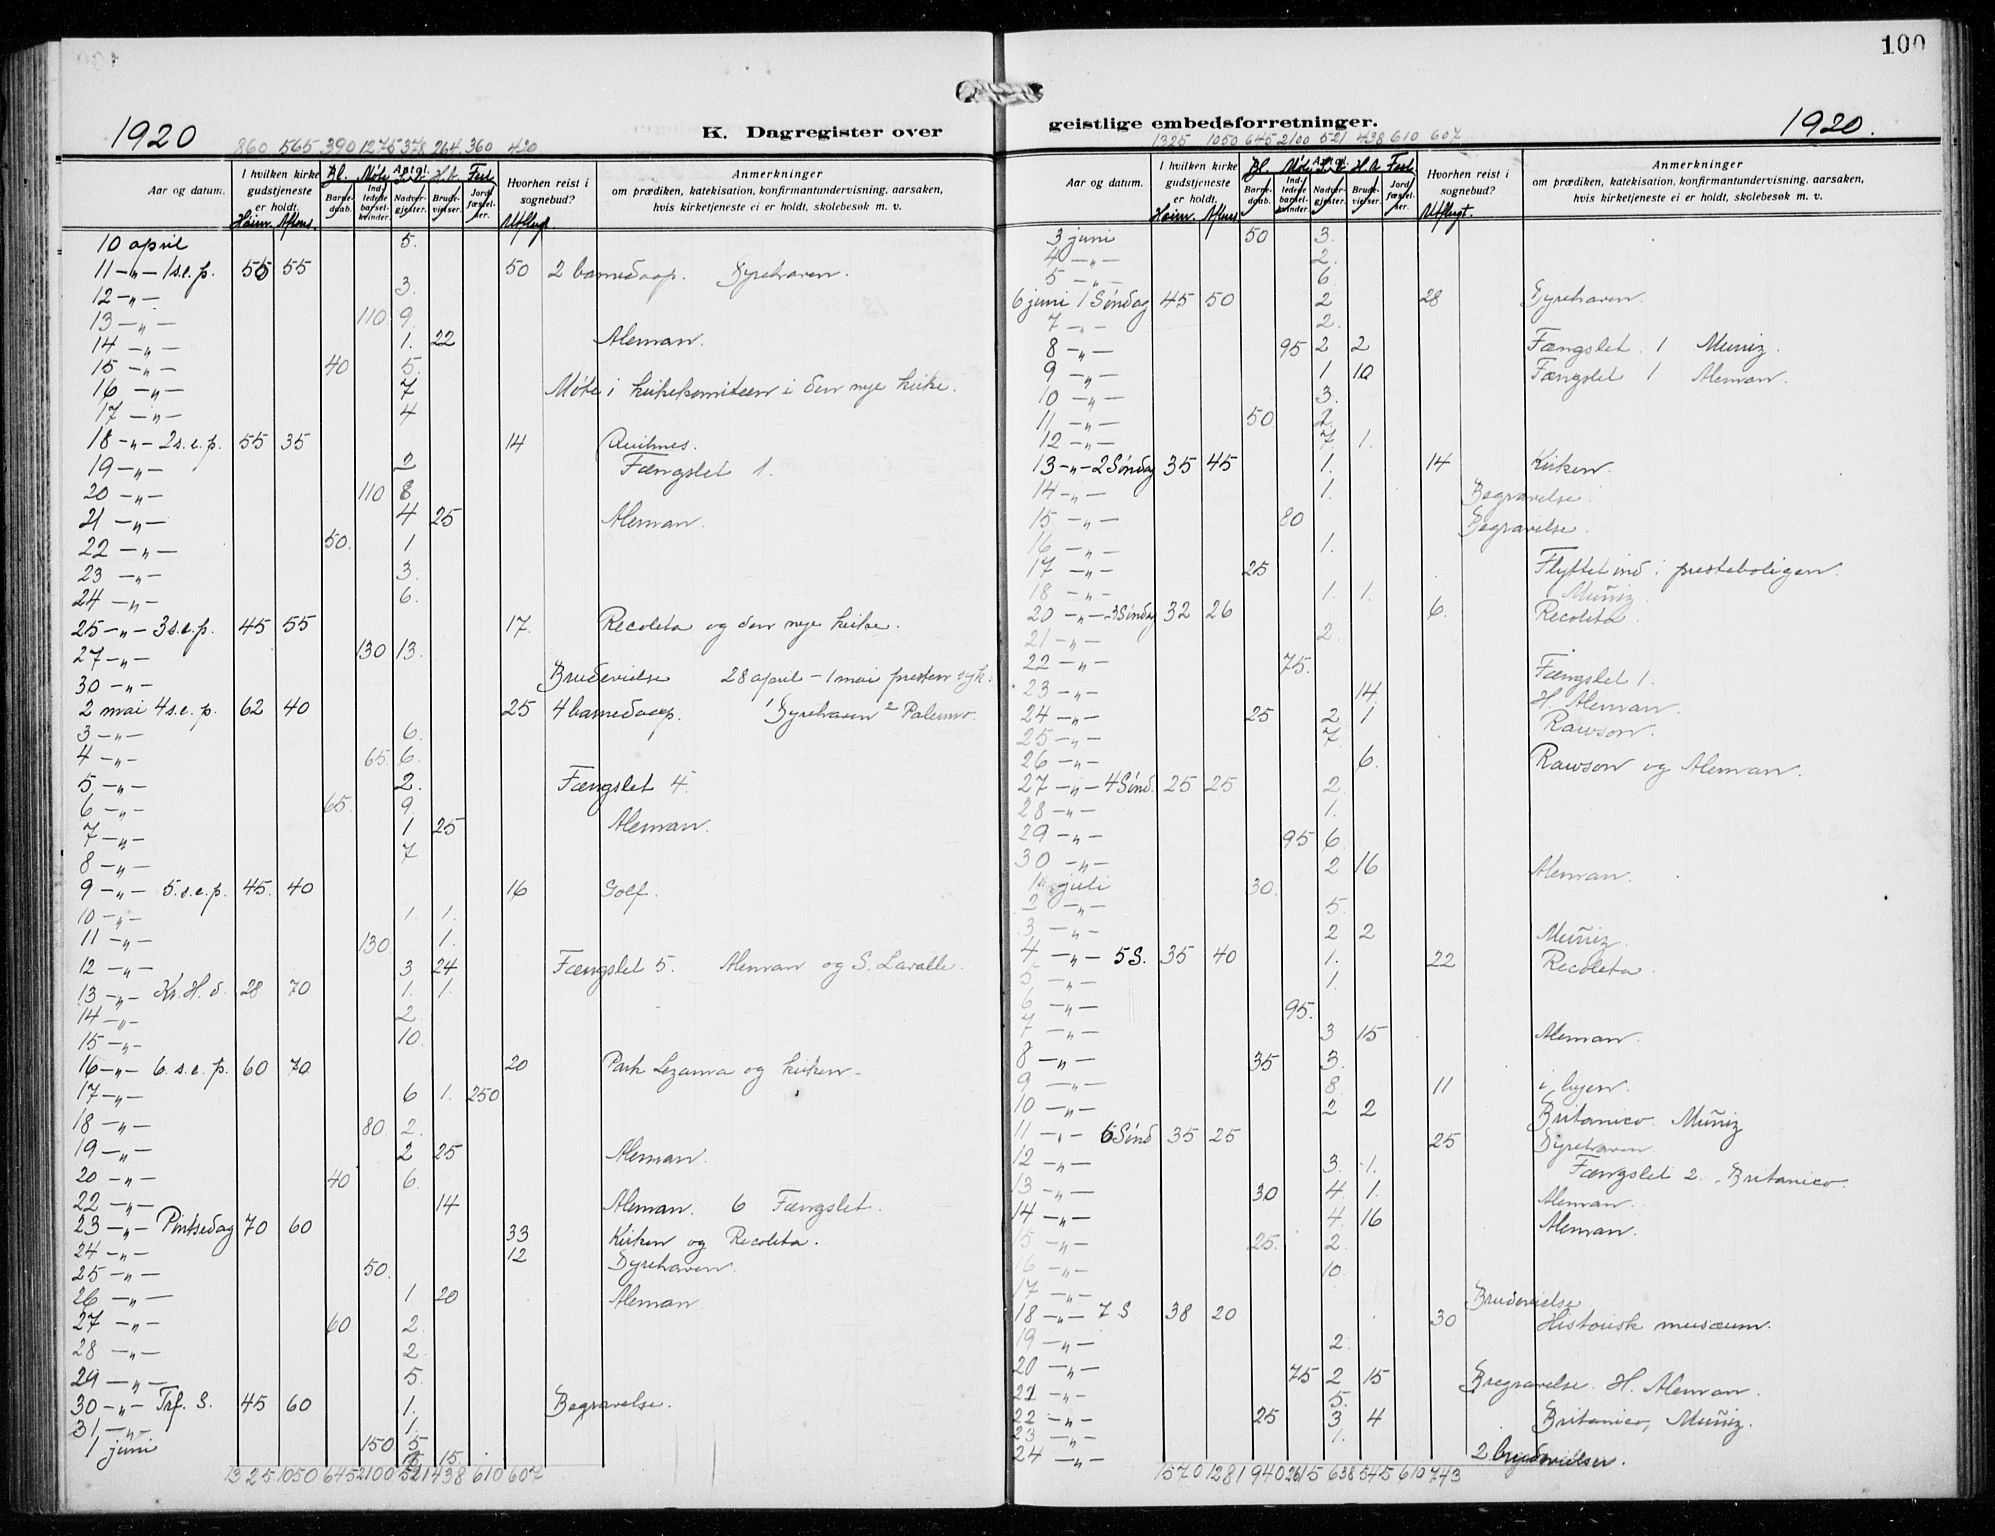 100
1920
K. Dagregister over
geistlige embedsforretninger.
1920.
860 565 390 1275 378 264 360 420
Aar og datum.
I hvilken kirke gudstjeneste er holdt.
Hvorhen reist i sognebud?
Anmerkninger
om prædiken, katekisation, konfirmantundervisning, aarsaken,
hvis kirketjeneste ei er holdt, skolebesøk m. v.
10 april 5.
11 –„– 1 s.e.p. 55 55 50 2 barnedaap. Dyrehaven.
12 –„– 3.
13 –„– 110 9.
14 –„– 1. 22 Aleman.
15 –„– 40 5.
16 –„– 7 Møte i kirkekomiteen i den nye kirke.
17 –„– 4
18 –„– 2 s.e.p. 55 35 14 Quilmes.
19 –„– 2 Fængslet 1.
20 –„– 110 8
21 –„– 4 25 Aleman.
22 –„– 50. 1
23 –„– 3.
24 –„– 6.
25 –„– 3 s.e.p. 45 55 17. Recoleta og den nye kirke.
27 –„– 130 13.
30 –„– Brudevielse 28 april – 1 mai presten syk.
2 mai 4 s.e.p. 62 40 25 4 barnedaap. 1 Dyrehaven 2 Palermo.
3 –„– 6.
4 –„– 65. 6.
5 –„– 2. Fængslet 4.
6 –„– 65. 9
7 –„– 1 25 Aleman.
8 –„– 7
9 –„– 5. s.e.p. 45. 40 16 Golf.
10 –„– 1. 1.
11 –„– 130. 1.
12 –„– 3 24 Fængslet 5. Aleman og S. Lavalle.
13 –„– Kr. H. d. 28 70 1. 1.
14 –„– 2.
15 –„– 10.
16 –„– 6. s.e.p. 60 70 20 Park Lezama og kirken –
17 –„– 6 1. 250
18 –„– 80. 2.
19 –„– 2 25 Aleman.
20 –„– 40 6.
22 –„– 14 Aleman. 6 Fængslet.
23 –„– Pintsedag 70 60 33 Kirken og Recoleta.
24 –„– 12 Dyrehaven.
25 –„– 50.
26 –„– 1 20 Aleman.
27 –„– 60 2.
28 –„– 2.
29 –„– 5.
30 –„– Trf. S. 45 60 1. Begravelse.
31 –„– 1.
1 juni 150 5
15.
1325 1050 645 2100 521 438 610 607
1325 1050 645 2100 521 438 610 607
Aar og datum.
I hvilken kirke gudstjeneste er holdt.
Hvorhen reist i sognebud?
Anmerkninger
om prædiken, katekisation, konfirmantundervisning, aarsaken,
hvis kirketjeneste ei er holdt, skolebesøk m. v.
3 juni 50 3.
4 –„– 2.
5 –„– 6.
6 juni 1 Søndag 45 50 2 28 Dyrehaven.
7 –„– 2.
8 –„– 95 2 2 Fængslet. 1 Muñiz.
9 –„– 1 10 Fængslet 1 Aleman.
10 –„– 3.
11 –„– 50 2.
12 –„– 7 1.
13 –„– 2 Søndag 35 45 1. 14 Kirken.
14 –„– 1. Begravelse.
15 –„– 80 Begravelse.
16 –„– 1.
17 –„– 25 Flyttet ind i presteboligen.
18 –„– 1. 1. Muñiz.
20 –„– 3 Søndag 32 26 6. Recoleta.
21 –„– 2.
22 –„– 75. Fængslet 1.
23 –„– 14. H. Aleman.
24 –„– 25 2 1 Rawson.
25 –„– 7
26 –„– 6. Rawson og Aleman.
27 –„– 4 Sønd. 25 25 2
28 –„– 1.
29 –„– 95 6.
30 –„– 2 16 Aleman.
1 juli 30.
2 –„– 5.
3 –„– 2 2 Muñiz.
4 –„– 5 S. 35 40 1. 22 Recoleta.
5 –„– 1.
6 –„– 95.
7 –„– 3 15 Aleman.
8 –„– 35 3.
9 –„– 8. 11 i byen.
10 –„– 2 2 Britanico. Muñiz
11 –„– 6 Sønd 35 25 25 Dyrehaven.
12 –„– 3. 1. Fængslet 2. Britanico.
13 –„– 30 4 1. Aleman.
14 –„– 4. 16 Aleman.
15 –„– 25. 2.
16 –„– 10.
17 –„– Brudevielse
18 –„– 7 S 38 20 30 Historisk museum.
19 –„– 2.
20 –„– 75 2 15 Begravelse. H. Aleman.
21 –„– 5.
22 –„– 25 3 4 Britanico, Muñiz.
23 –„– 1.
24 –„– 2 brudevielser.
1570 1281 940 2615 638 545 610 743